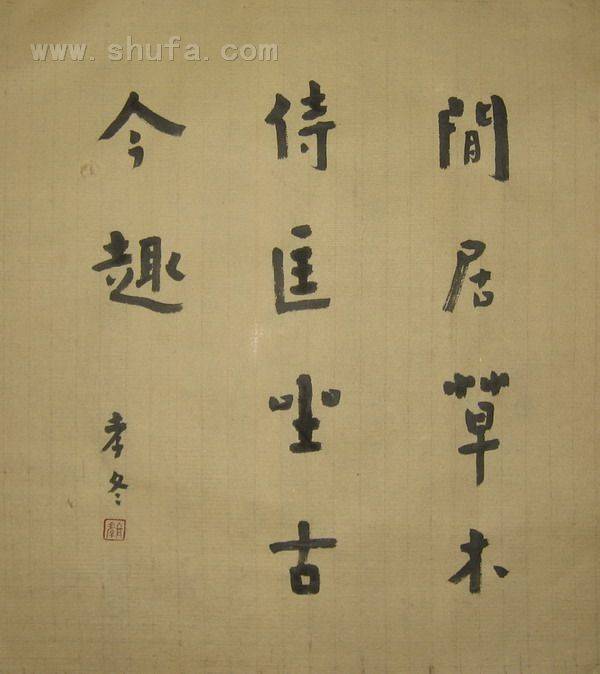 www.shufa.com
閒居草木
侍匡坐古
今趣